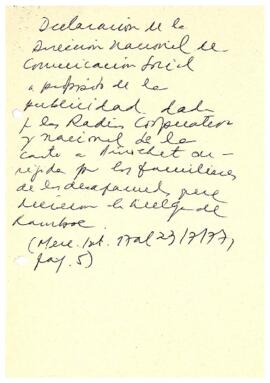 Declaración de la
Dirección Nacional de
Comunicación Social
a propósito de la
publicidad dada
p las Radios Cooperativa
y Nacional de la
carta a Pinochet di-
rigida por los familiares
de los desaparecidos que
hicieron la huelga de
hambre.
(Merc. Int. 17 al 23/7/77,
pág. 5)